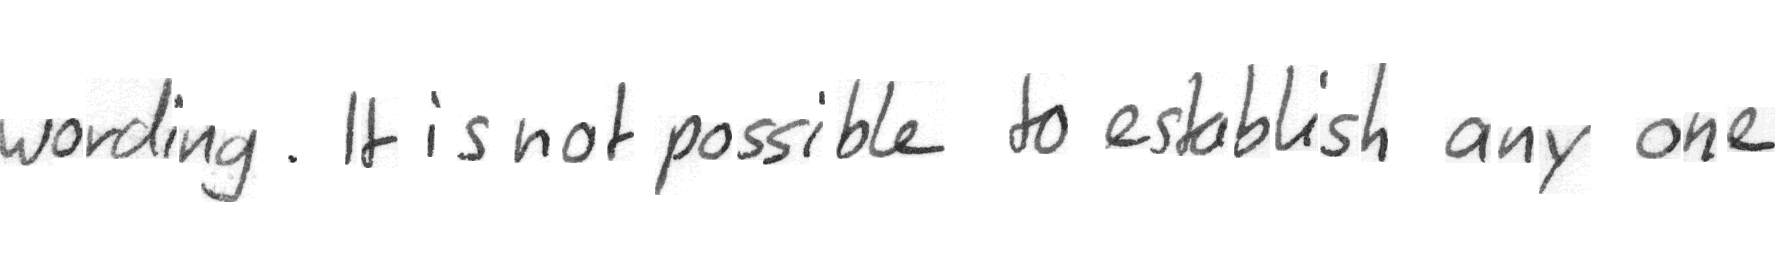 wording. It is not possible to establish any one